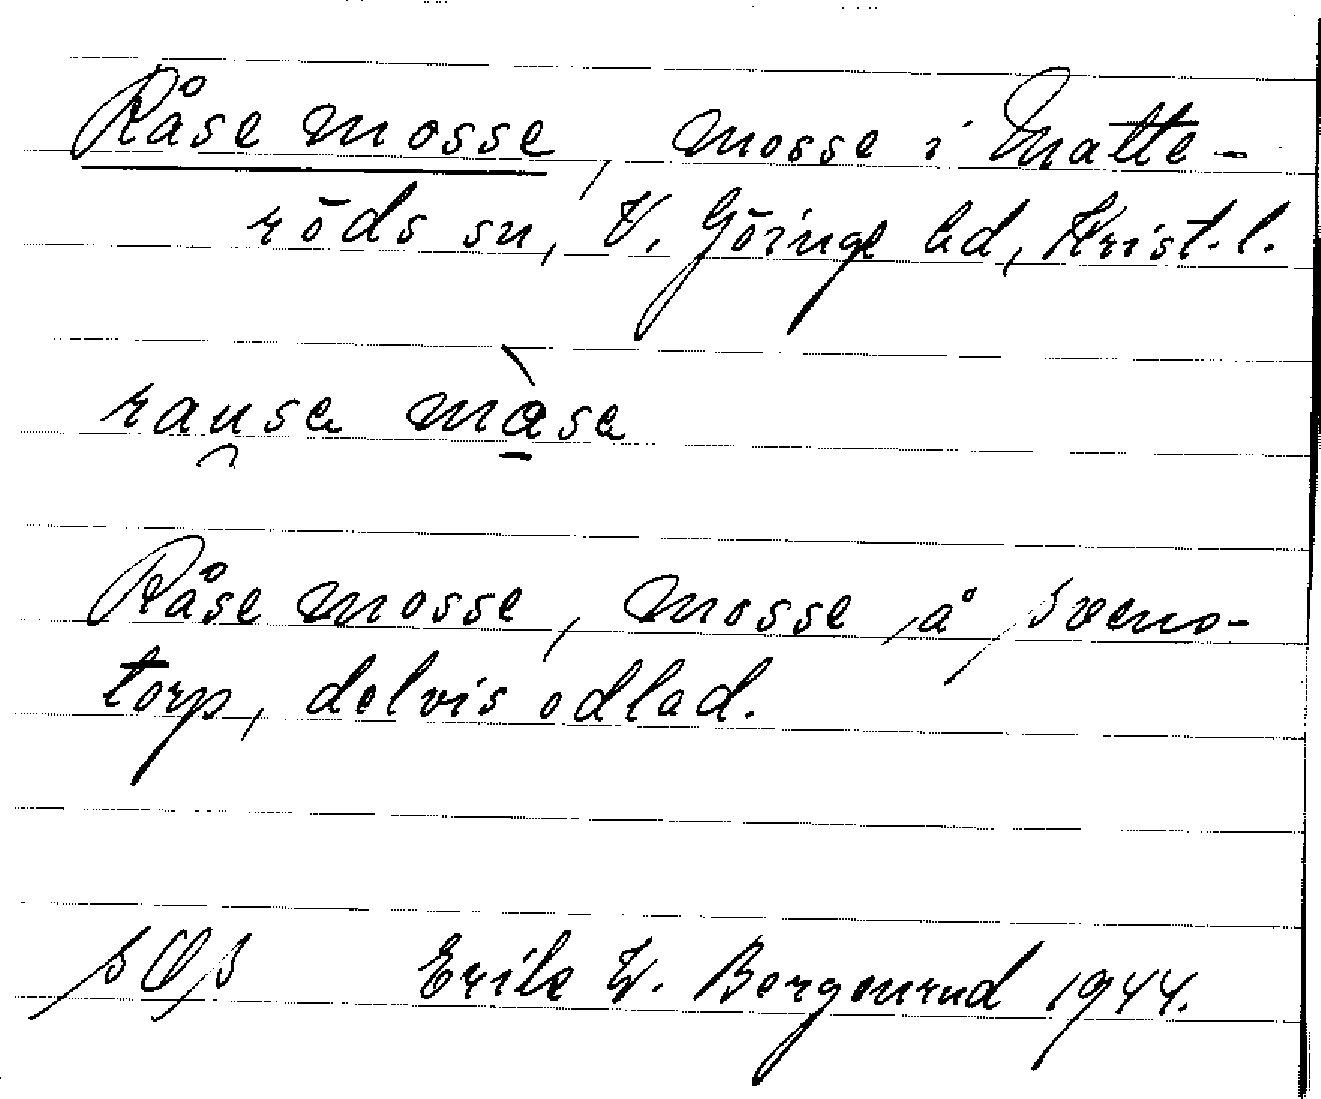 Råse mosse, mosse i Matte-
röds sn, V. Göinge hd, Krist. l.
rausa màsa
Råse mosse, mosse å Svens-
torp, delvis odlad.
SOS Erik W. Bergenrud 1944.